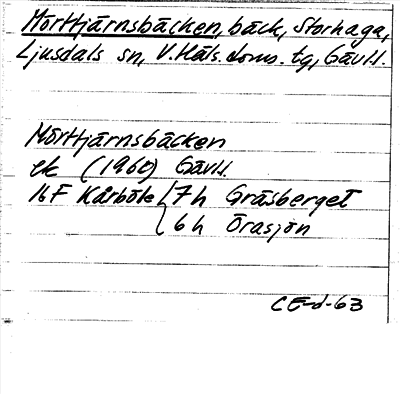 Mörttjärnsbäcken, bäck, Storhaga,
Ljusdals sn, V. Häls. doms. tg, Gävl.l.
Mörttjärnsbäcken
ek (1960) Gävl.l.
16 F Kårböle 7 h Gräsberget
6 h Örasjön
CE-d-63